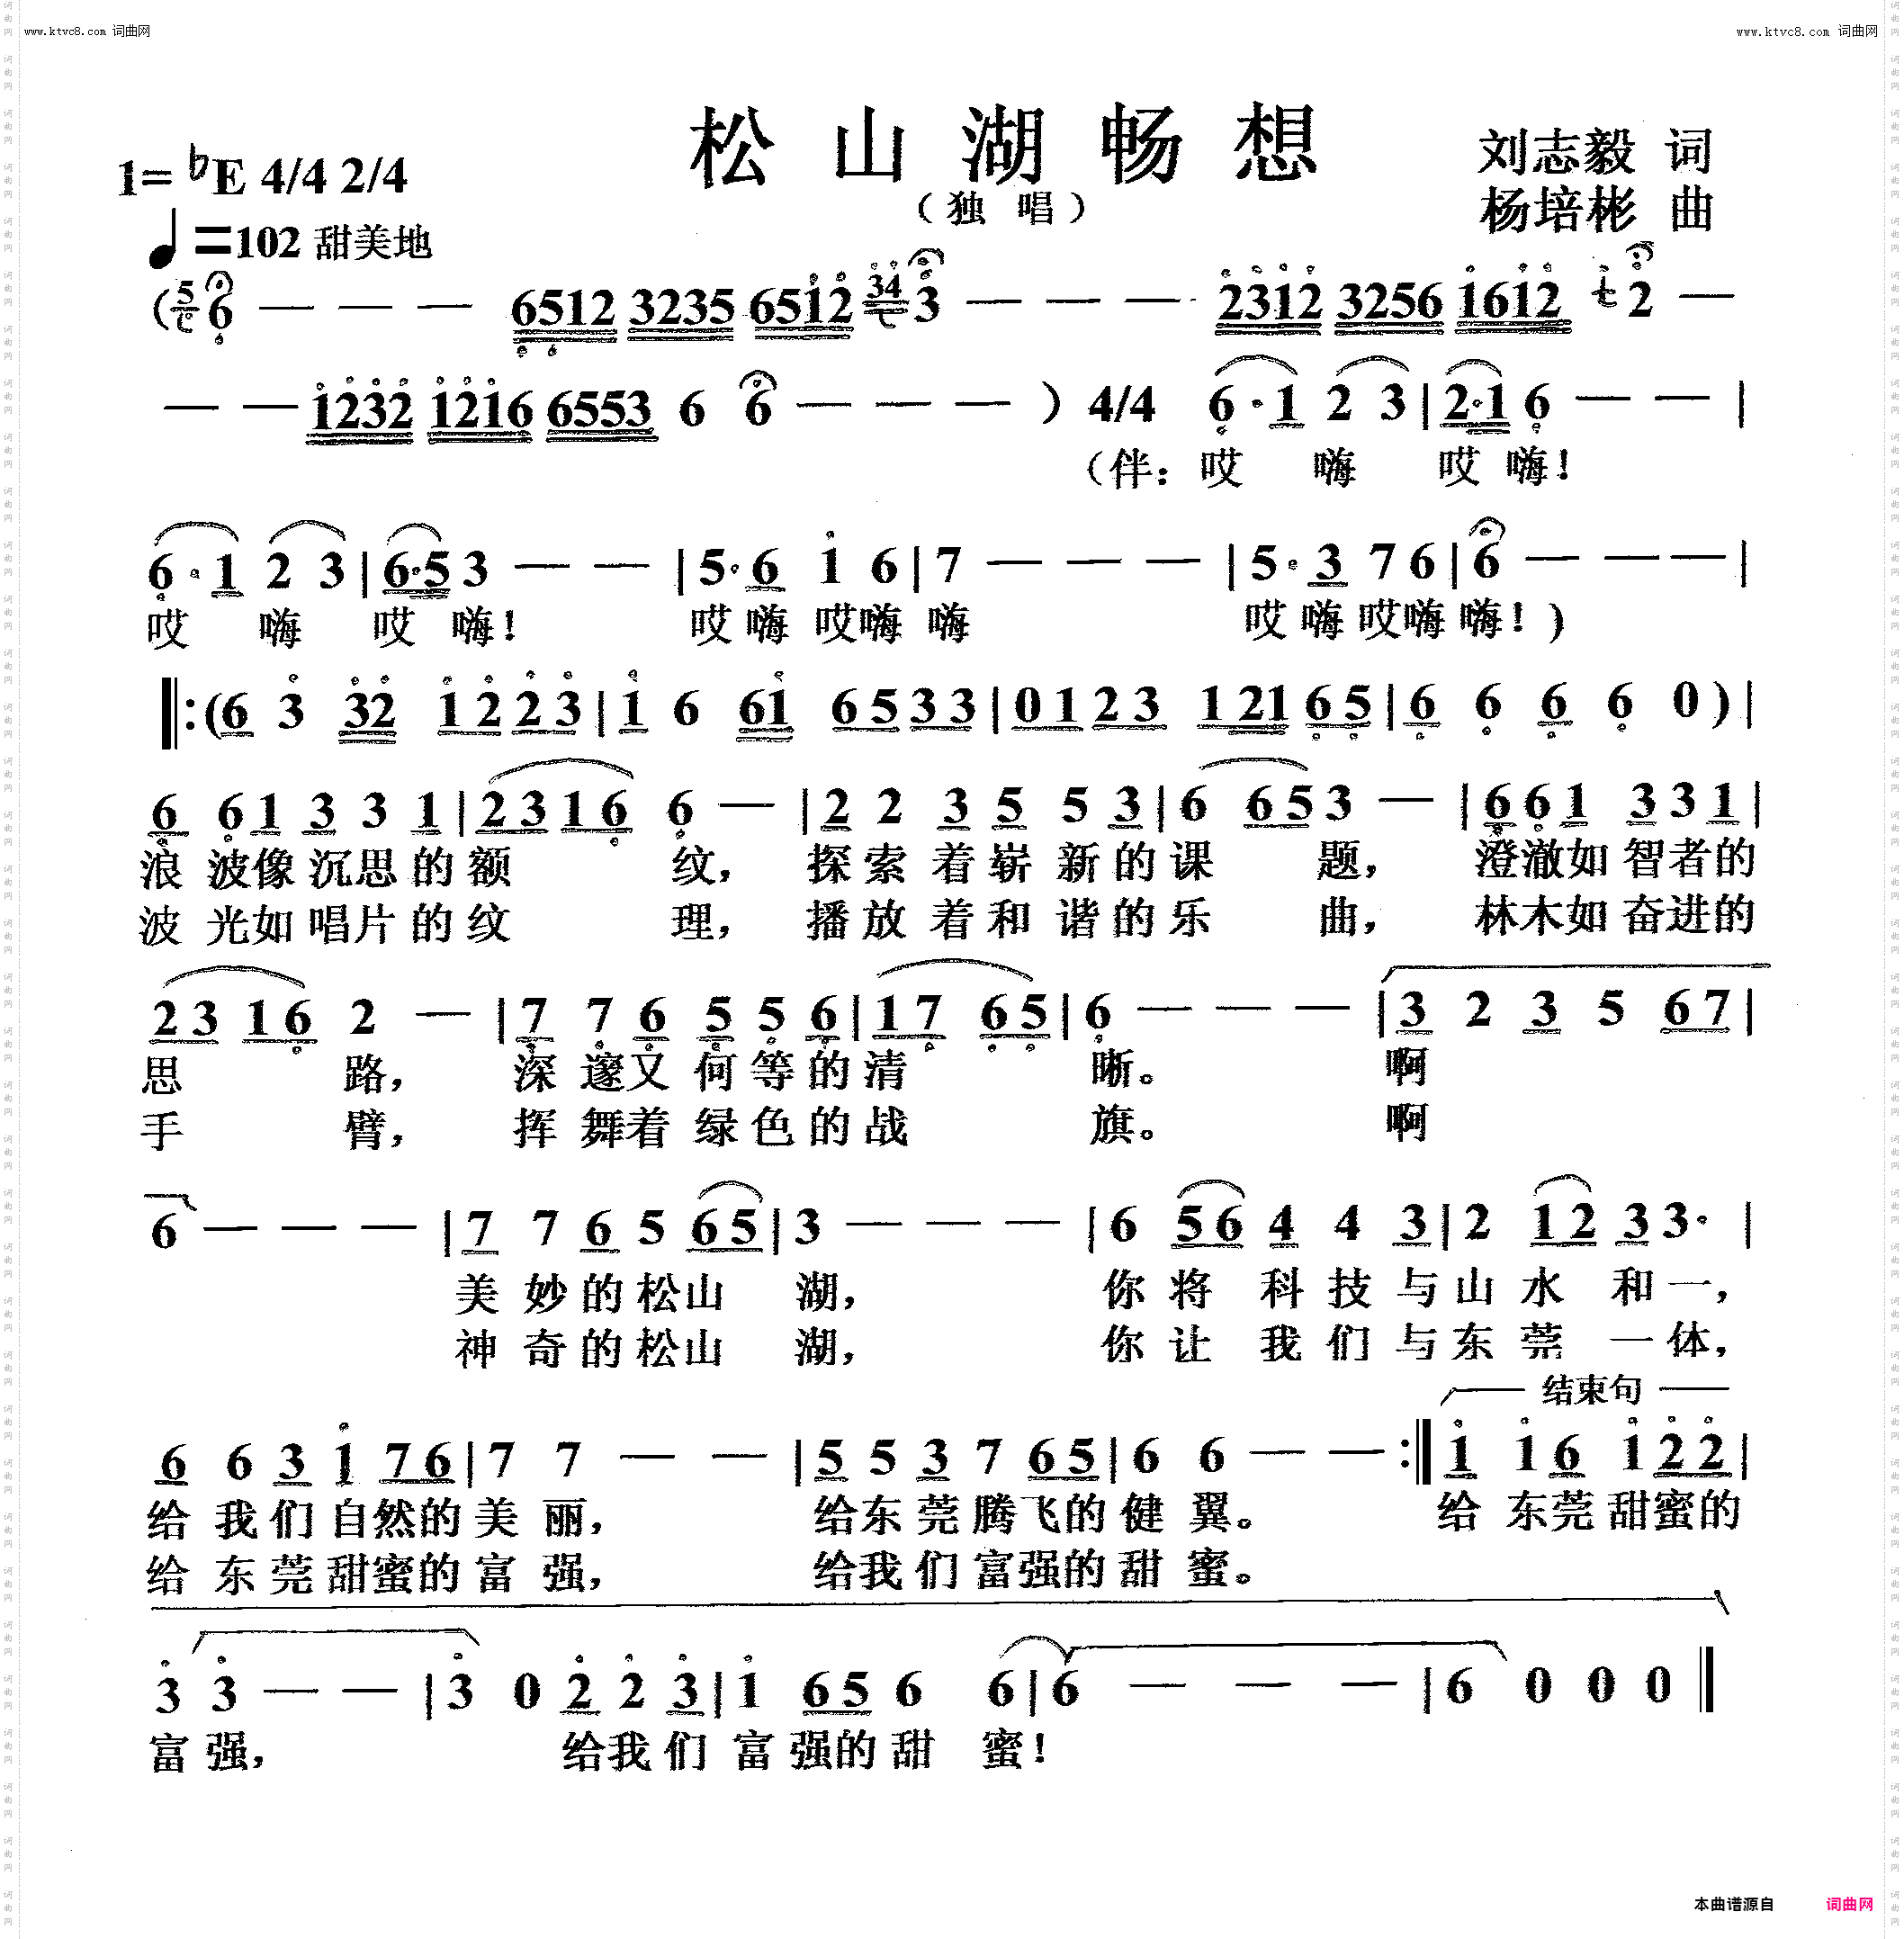 www.ktvc8.com 词曲网
www.ktvc8.com 词曲网
松山湖畅想
（独唱）
刘志毅 词
杨培彬 曲
1=♭E 4/4 2/4
♩=102 甜美地
(5 6 — — — 6512 3235 6512 34 3 — — — 2312 3256 1612 2 —
— — 1232 1216 6553 6 6 — — — ) 4/4 6·1 2 3 | 2·1 6 — — |
（伴：哎 嗨 哎 嗨！
6·1 2 3 | 6·5 3 — — | 5·6 1 6 | 7 — — — | 5·3 7 6 | 6 — — — |
哎 嗨 哎 嗨！ 哎嗨 哎嗨 嗨 哎嗨哎嗨嗨！)
‖: (6 3 32 12 23 | 1 6 61 65 33 | 01 23 121 65 | 6 6 6 6 0 ) |
6 61 3 3 1 | 23 16 6 — | 2 2 3 5 5 3 | 6 65 3 — | 6 6 1 3 3 1 |
浪 波像 沉思 的额 纹， 探索 着崭 新的课 题， 澄澈如 智者的
波 光如 唱片 的纹 理， 播放 着和 谐的乐 曲， 林木如 奋进的
23 16 2 — | 7 7 6 5 5 6 | 17 65 | 6 — — — | 3 2 3 5 67 |
思 路， 深 邃又 何等的清 晰。 啊
手 臂， 挥 舞着 绿色的战 旗。 啊
6 — — — | 7 7 6 5 65 | 3 — — — | 6 56 4 4 3 | 2 12 3 3· |
美 妙的松山 湖， 你 将 科 技 与山 水 和一，
神 奇的松山 湖， 你 让 我 们 与东 莞 一体，
结束句
6 6 3 1 76 | 7 7 — — | 5 5 3 7 65 | 6 6 — — :‖ 1 1 6 1 22 |
给 我们 自然的美 丽， 给东 莞腾飞的健 翼。 给 东莞甜蜜的
给 东莞甜蜜的富 强， 给我们富强的甜 蜜。
3 3 — — | 3 0 2 2 3 | 1 65 6 6 | 6 — — — | 6 0 0 0 ‖
富 强， 给我们 富强的甜 蜜！
本曲谱源自 词曲网